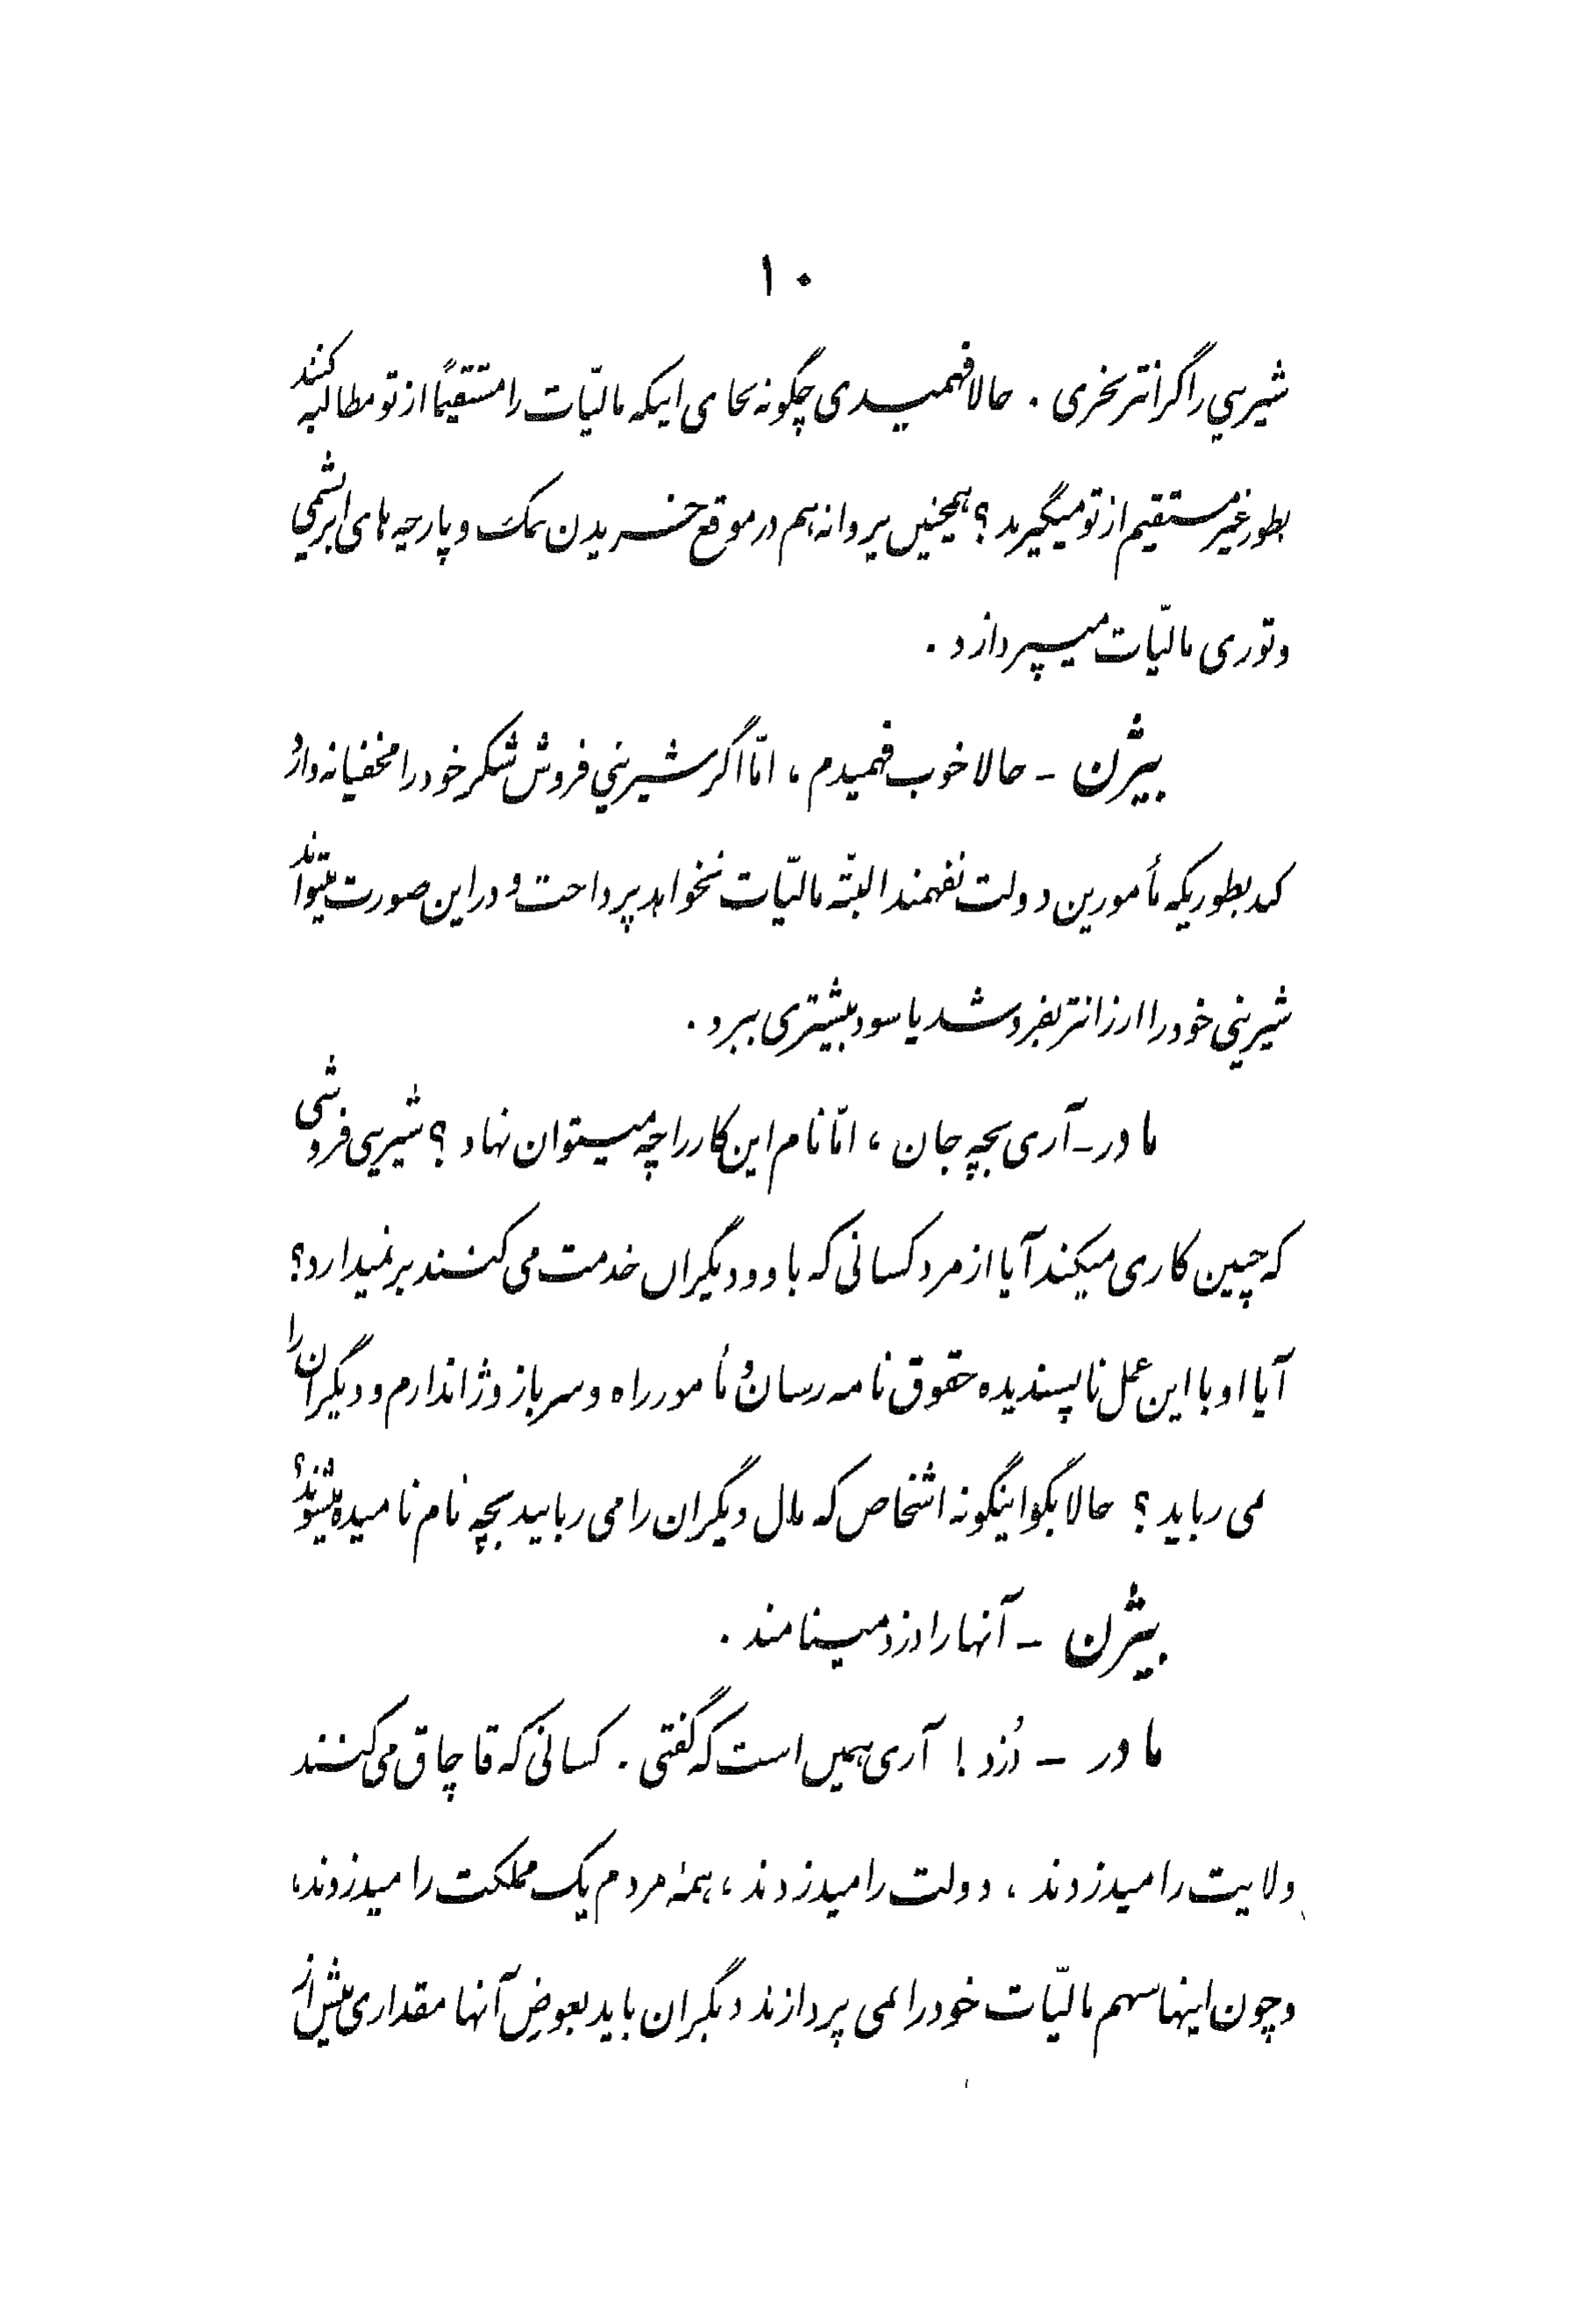 ۱۰
شیرینی را گرانتر بخری . حالا فهمیدی چگونه بجای اینکه مالیّات را مستقیماً از تو مطالبه کنند
بطور غیر مستقیم از تو میگیرند ؟ همچنین پروانه هم در موقع خریدن نمک و پارچه های ابریشمی
و توری مالیّات میپردازد .
بیژن - حالا خوب فهمیدم ، امّا اگر شیرینی فروش شکر خود را مخفیانه وارد
کند بطوریکه مأمورین دولت نفهمند البتّه مالیّات نخواهد پرداخت و در این صورت میتواند
شیرینی خود را ارزانتر بفروشد یا سود بیشتری ببرد .
مادر - آری بچه جان ، امّا نام این کار را چه میتوان نهاد ؟ شیرینی فروشی
که چنین کاری میکند آیا از مزد کسانی که باو و دیگران خدمت می کنند بر نمیدارد ؟
آیا او با این عمل ناپسندیده حقوق نامه رسان و مأمور راه و سرباز و ژاندارم و دیگران را
نمی رباید ؟ حالا بگو اینگونه اشخاص که مال دیگران را می ربایند بچه نام نامیده میشوند ؟
بیژن - آنها را دزد مینامند .
مادر - دُزد ! آری همین است که گفتی . کسانی که قاچاق می کنند
ولایت را میدزدند ، دولت را میدزدند ، همهٔ مردم یک مملکت را میدزدند ،
و چون اینها سهم مالیّات خود را نمی پردازند دیگران باید بعوض آنها مقداری بیش از